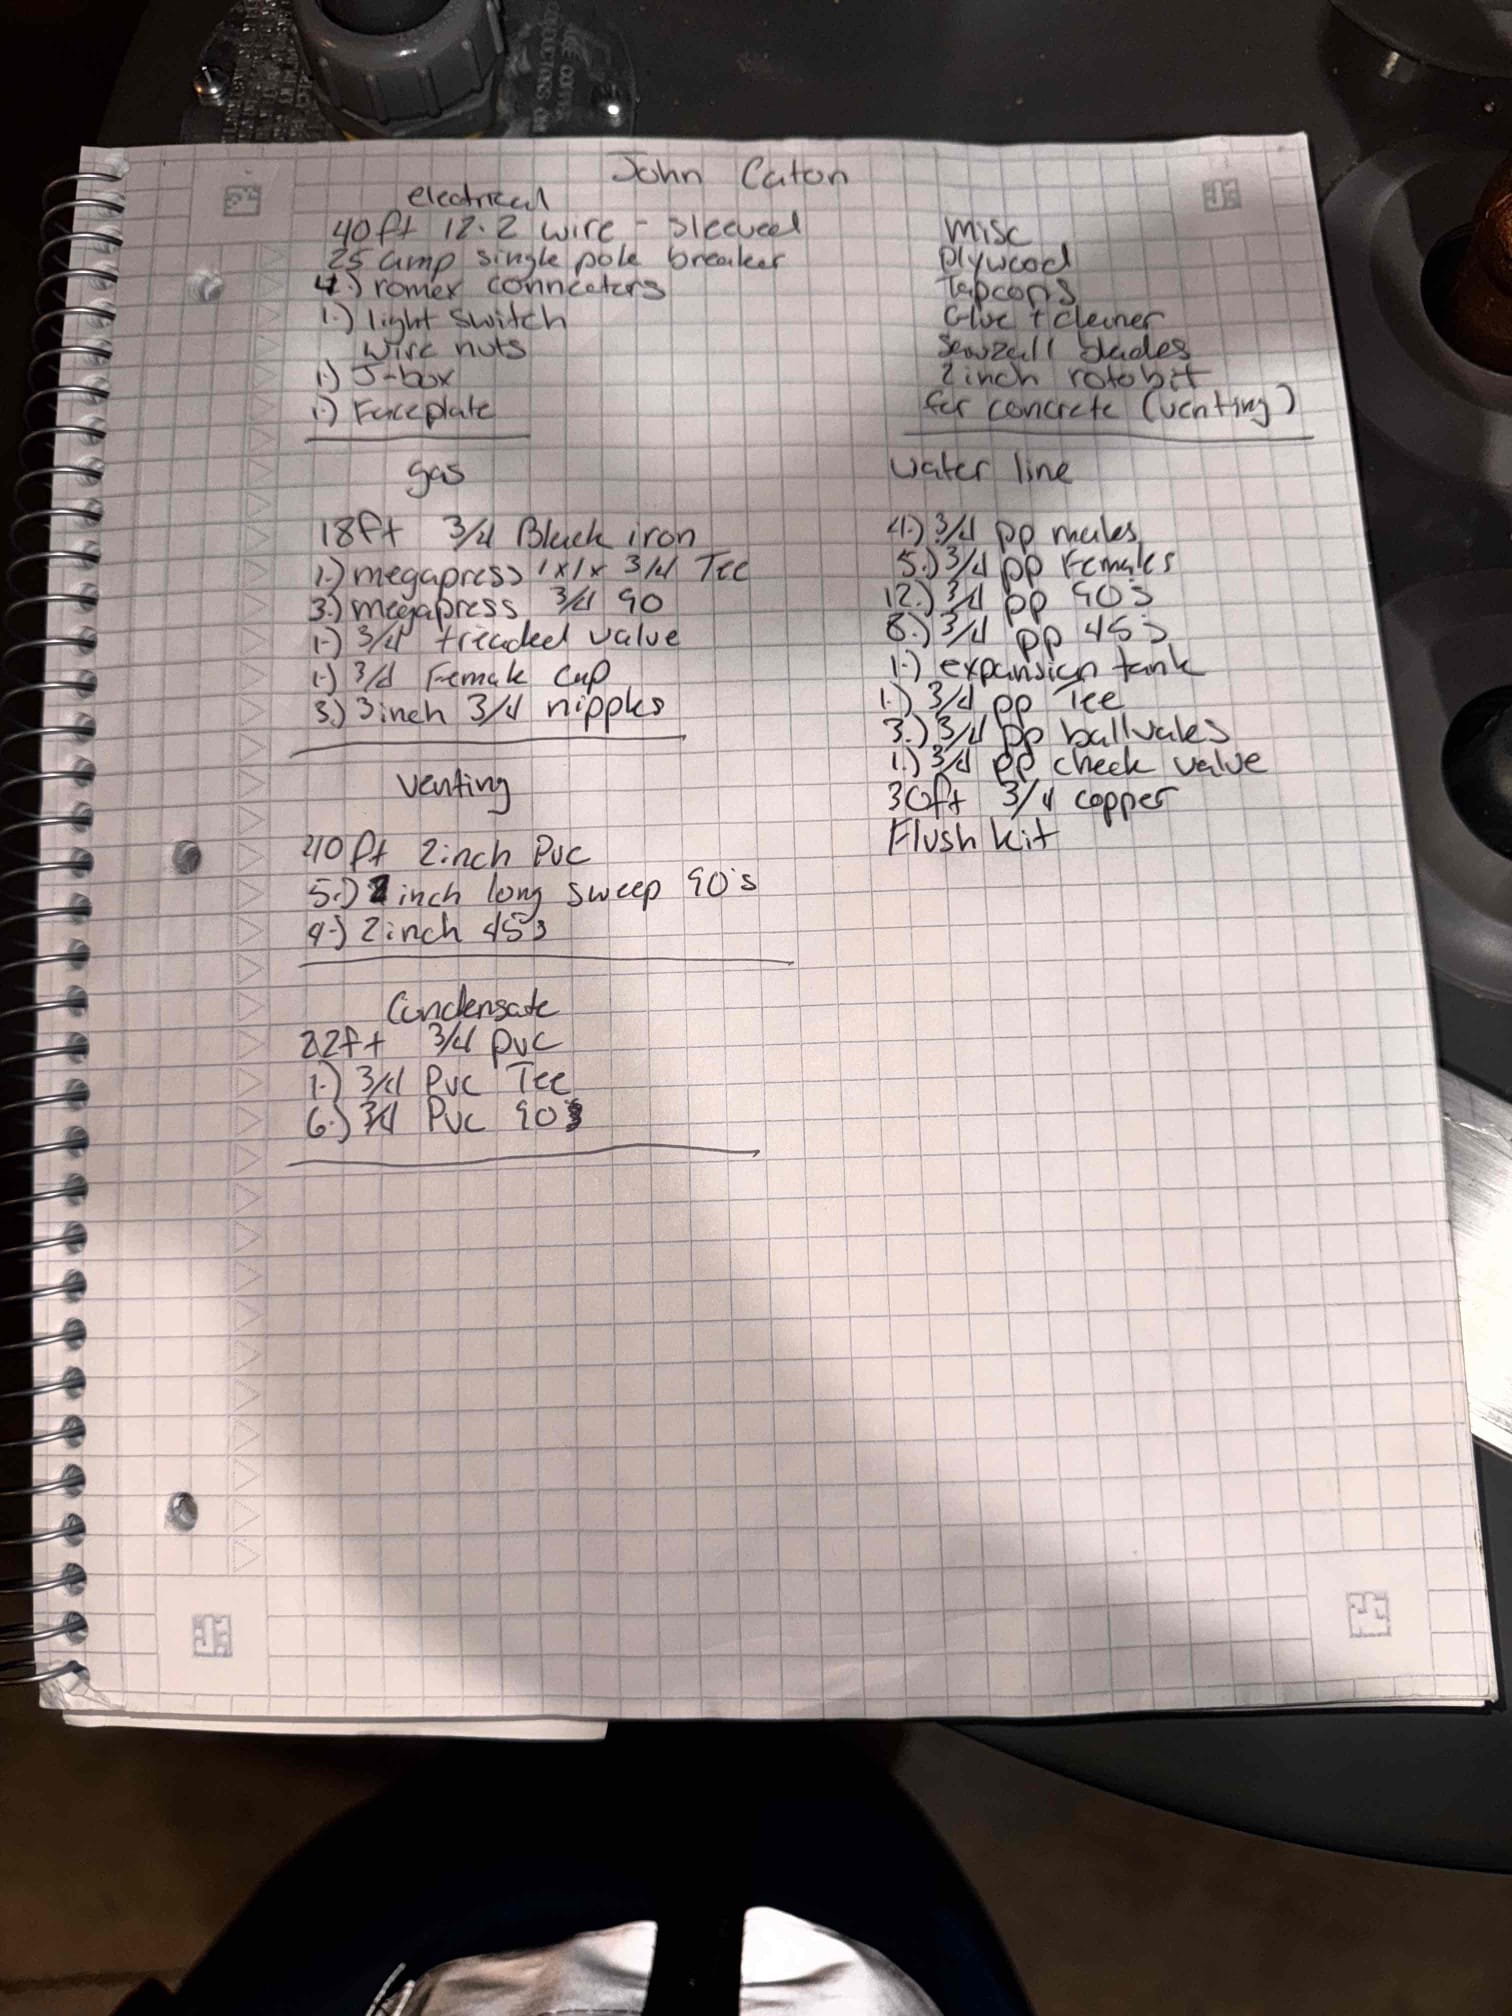 John Caton
electrical
40ft 12.2 wire - sleeved
25 amp single pole breaker
4.) romex conncators
1.) light switch
wire nuts
1.) J-box
1.) Faceplate
gas
18ft 3/4 Black iron
1.) megapress 1x1x 3/4 Tee
3.) megapress 3/4 90
1.) 3/4 treaded value
1.) 3/4 Female Cap
3.) 3inch 3/4 nipples
Venting
40ft 2inch PVC
5.) 2 inch long sweep 90's
4.) 2inch 45s
Condensate
22ft 3/4 pvc
1.) 3/4 PVC Tee
6.) 3/4 PVC 90s
misc
Plywood
Tapcons
Glue + cleaner
Sawzall blades
2inch roto bit
for concrete (venting)
water line
4.) 3/4 pp males
5.) 3/4 pp Females
12.) 3/4 pp 90s
8.) 3/4 pp 45s
1.) expansion tank
1.) 3/4 pp Tee
3.) 3/4 pp ballvales
1.) 3/4 pp check value
30ft 3/4 copper
Flush kit